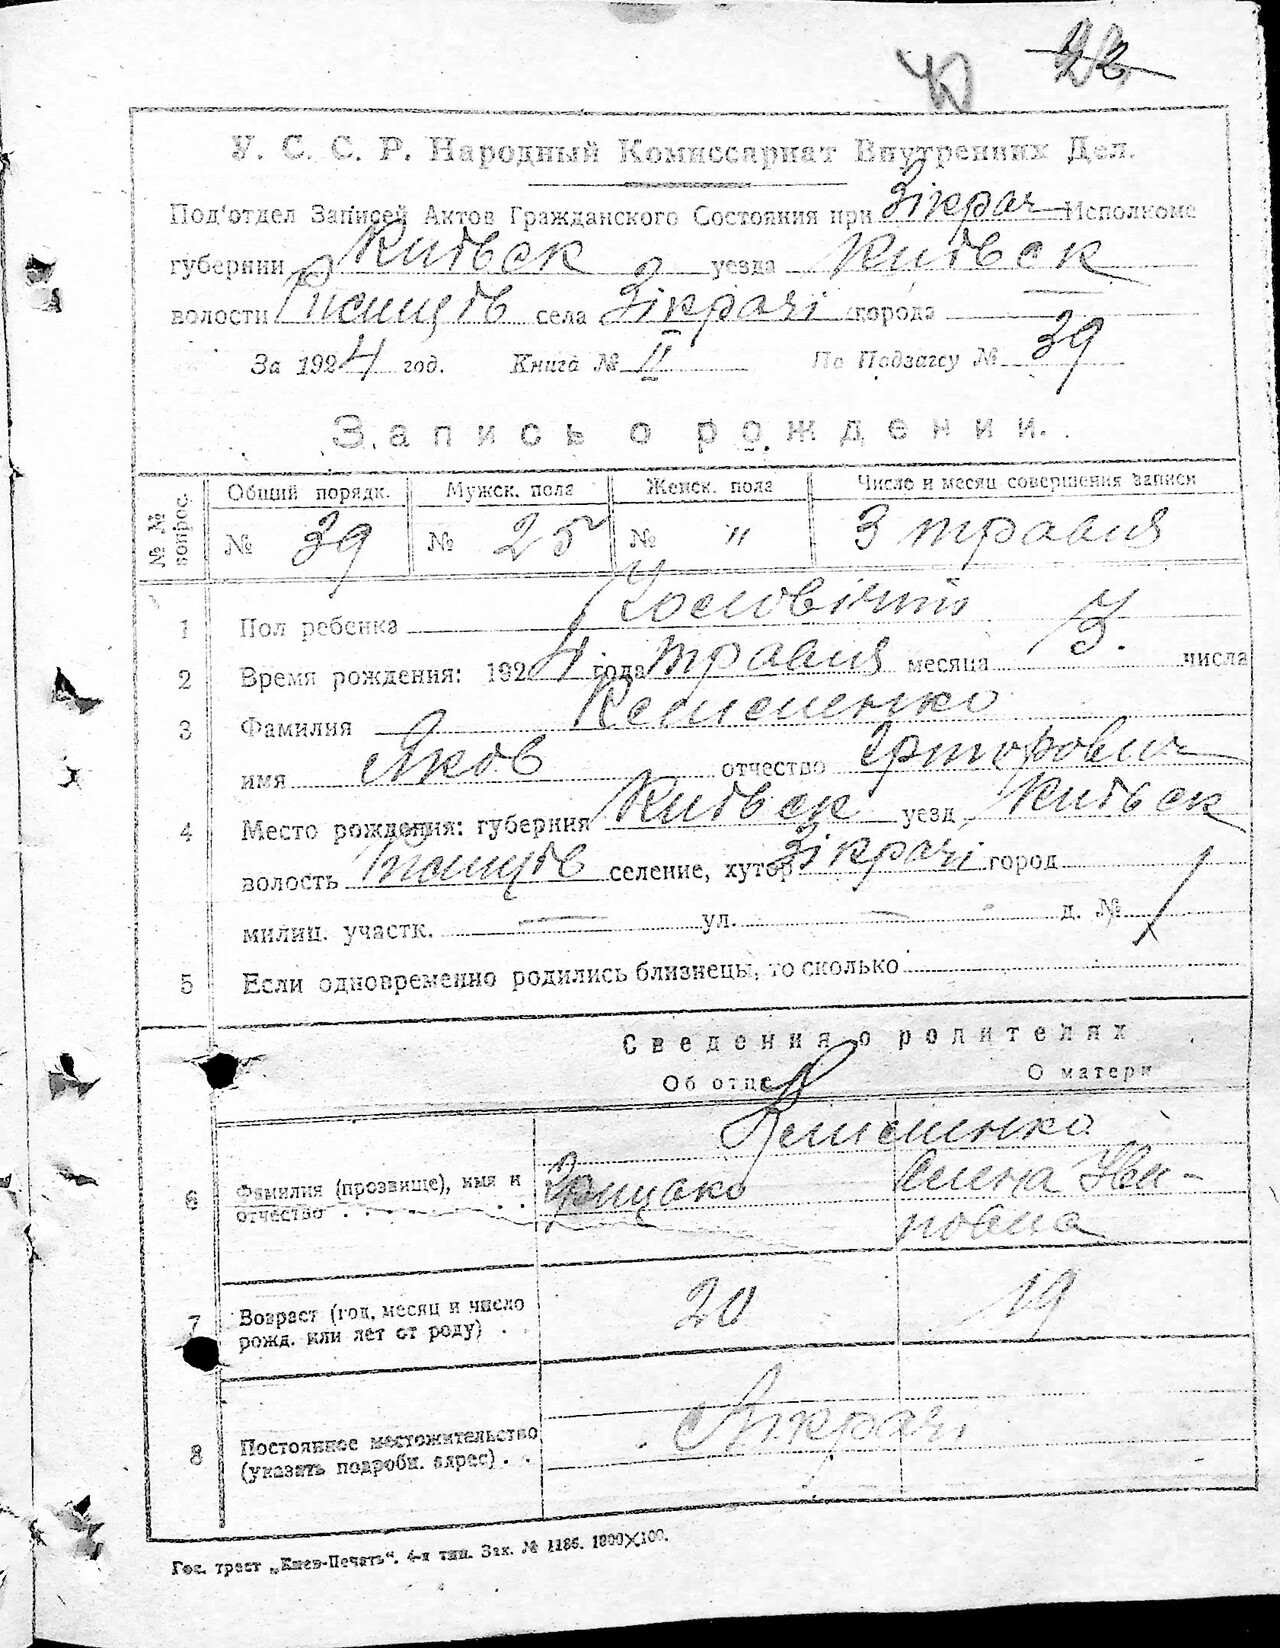 22
У. С. С. Р. Народный Комиссариат Внутренних Дел.
Под'отдел Записей Актов Гражданского Состояния при Зікрач Исполкоме
губернии Київск уезда Київск
волости села Зікрачі города
За 1924 год. Книга № II По Подзагсу № 39
Запись о рождении.
№ № вопрос. Общий порядк. Мужск. пола Женск. пола Число и месяц совершения записи
№ 39 № 25 № " 3 травня
1 Пол ребенка Чоловічий
2 Время рождения: 1924 года травня месяца 3. числа
3 Фамилия
имя Яков отчество
4 Место рождения: губерния Київск уезд Київск
волость селение, хутор Зікрачі город
милиц. участк. — ул. — д. №
5 Если одновременно родились близнецы, то сколько
Сведения о родителях
Об отце О матери
6 Фамилия (прозвище), имя и
отчество . . . Грицько Олена
7 Возраст (год, месяц и число
рожд. или лет от роду) . . 20 19
8 Постоянное местожительство
(указать подробн. адрес) . . Зікрачі
Гос. трест „Киев-Печать“. 4-я тип. Зак. № 1186. 1800×100.